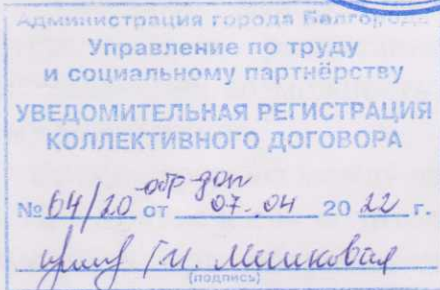 Администрация города Белгорода
Управление по труду
и социальному партнёрству
УВЕДОМИТЕЛЬНАЯ РЕГИСТРАЦИЯ
КОЛЛЕКТИВНОГО ДОГОВОРА
№ 64/20 обр-доп от 07.04 20 22 г.
(подпись)